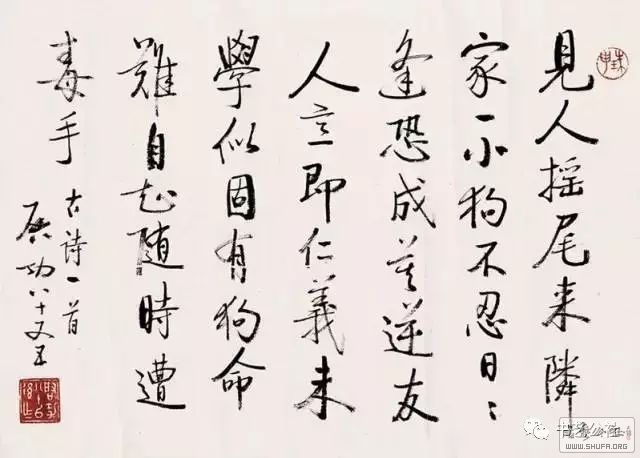 見人摇尾来隣
家一小狗不忍日〻
逢恐成莫逆友
人即仁義未
學似固有狗命
難自知随時遭
毒手
古诗一首
启功八十又五
www.SHUFA.ORG